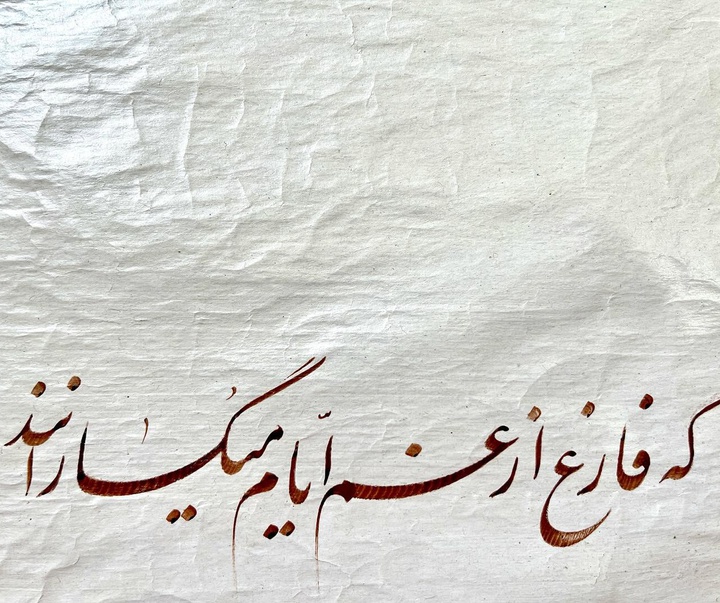 که فارغ از غم ایّام میگسارانند